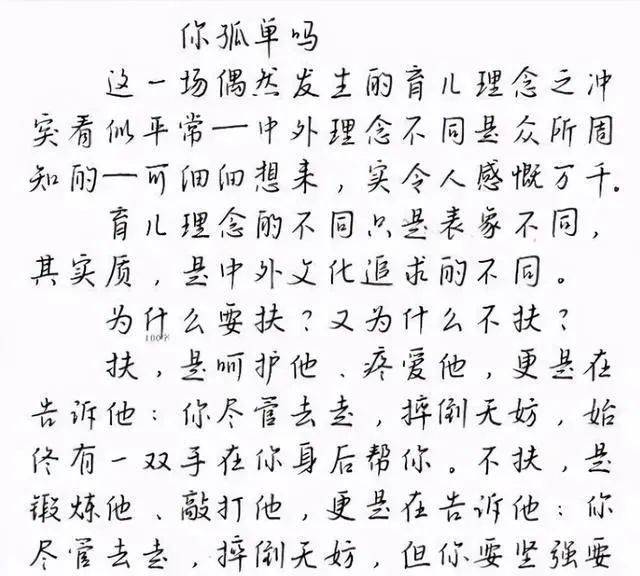 你孤单吗
这一场偶然发生的育儿理念之冲
突看似平常一中外理念不同是众所周
知的一可细细想来，实令人感慨万千。
育儿理念的不同只是表象不同，
其实质，是中外文化追求的不同。
为什么要扶？又为什么不扶？
100字
扶，是呵护他、疼爱他，更是在
告诉他：你尽管去走，摔倒无妨，始
终有一双手在你身后帮你。不扶，是
锻炼他、敲打他，更是在告诉他：你
尽管去走，摔倒无妨，但你要坚强要